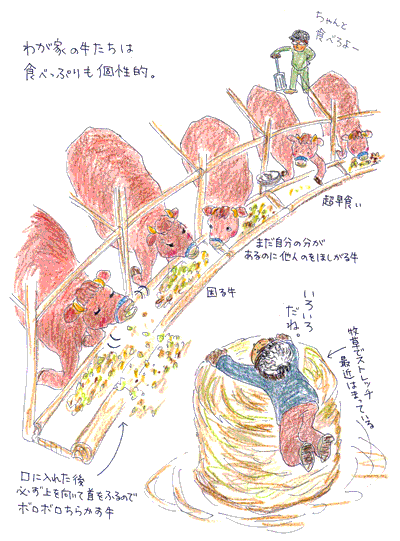 わが家の牛たちは
食べっぷりも個性的。
ちゃんと
食べろよー
超早食い
まだ自分の分が
あるのに他人のをほしがる牛
困る牛
いろいろ
だね。
牧草でストレッチ
最近はまっている
口に入れた後
必ず上を向いて首をふるので
ボロボロちらかす牛